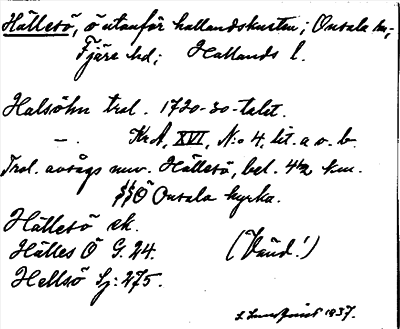 Hällesö, ö utanför hallandskusten; Onsala sn,
Fjäre hd; Hallands l.
Halsöhn trol. 1720-30-talet.
—"— KrA, XVI, N:o 4, lit. a o. b.
Trol. avsågs nuv. Hällesö, bel. 4½ km.
SSÖ Onsala kyrka.
Hällesö ek.
Hälles Ö G. 24. (Vänd!)
Hellsö Sj: 275.
1937.